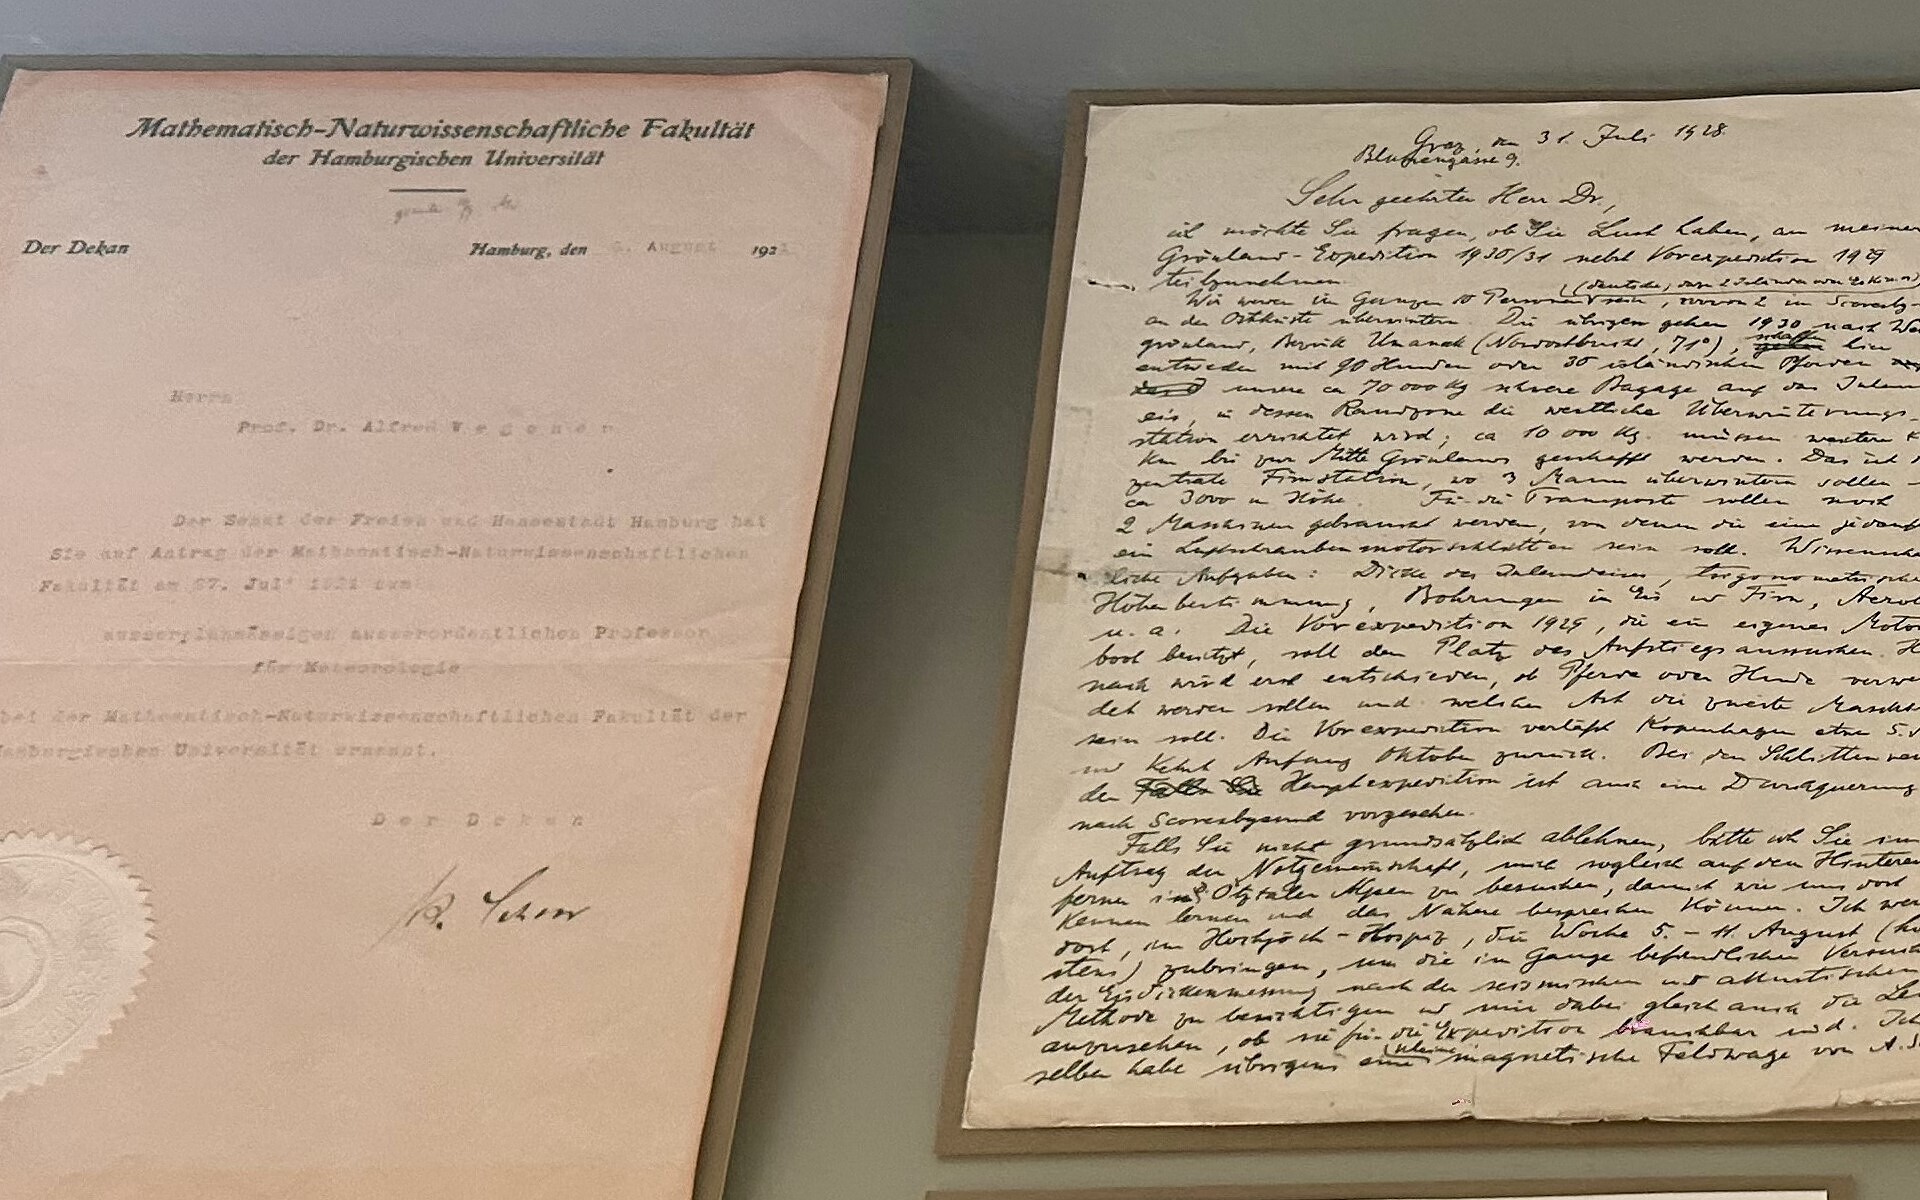 Mathematisch-Naturwissenschaftliche Fakultät
der Hamburgischen Universität
Der Dekan
Hamburg, den 6. August 1921
Herrn
Prof. Dr. Alfred Wegener
Der Senat der Freien und Hansestadt Hamburg hat
Sie auf Antrag der Mathematisch-Naturwissenschaftlichen
Fakultät am 27. Juli 1921 zum
ausserplanmässigen ausserordentlichen Professor
für Meteorologie
bei der Mathematisch-Naturwissenschaftlichen Fakultät der
Hamburgischen Universität ernannt.
Der Dekan
Graz, den 31. Juli 1928.
Blumengasse 9.
Sehr geehrter Herr Dr,
ich möchte Sie fragen, ob Sie Lust haben, an meiner
Grönland-Expedition 1930/31 nebst Vorexpedition 1929
teilzunehmen.
Wir werden im Ganzen 10 Personen sein, wovon 2 im Scoresby-
an der Ostküste überwintern. Die übrigen gehen 1930 nach
grönland, Bezirk Umanak (Nordostbucht, 71°), schaffen hier
entweder mit 90 Hunden oder 30 isländischen Pferden
unsere ca 70 000 kg schwere Bagage auf das
eis, in dessen Randzone die westliche Überwinterungs-
station errichtet wird; ca 10 000 kg müssen weitere
km bis zur Mitte Grönlands geschafft werden. Das ist
zentrale Firnstation, wo 3 Mann überwintern sollen
ca 3000 m Höhe. Für die Transporte sollen noch
2 Maschinen gebraucht werden, von denen die eine
ein Luftschraubenmotorschlitten sein soll.
liche Aufgaben: Dicke des Inlandeises, trigonometrische
Höhenbestimmung, Bohrungen in Eis u Firn,
u. a. Die Vorexpedition 1929, die ein eigenes Motor
boot besitzt, soll den Platz des Aufstiegs aussuchen.
nach wird erst entschieden, ob Pferde oder Hunde
det werden sollen und welcher Art die zweite
sein soll. Die Vorexpedition verläßt Kopenhagen etwa
und kehrt Anfang Oktober zurück. Bei den Schlitten
der Hauptexpedition ist auch eine Durchquerung
nach Scoresbysund vorgesehen.
Falls Sie nicht grundsätzlich ablehnen, bitte ich Sie im
Auftrag der Notgemeinschaft, mich sogleich auf dem
ferner in d Ötztaler Alpen zu besuchen, damit wir uns dort
kennen lernen und das Nähere besprechen können. Ich
dort, im Hochjoch-Hospiz, die Woche 5. – 11. August
stens) zubringen, um die im Gange befindlichen
der Eisdickenmessung nach der seismischen und akustischen
Methode zu besichtigen u mir dabei gleich auch die
anzusehen, ob sie für die Expedition brauchbar sind. Ich
selber habe übrigens eine kleine magnetische Feldwage von